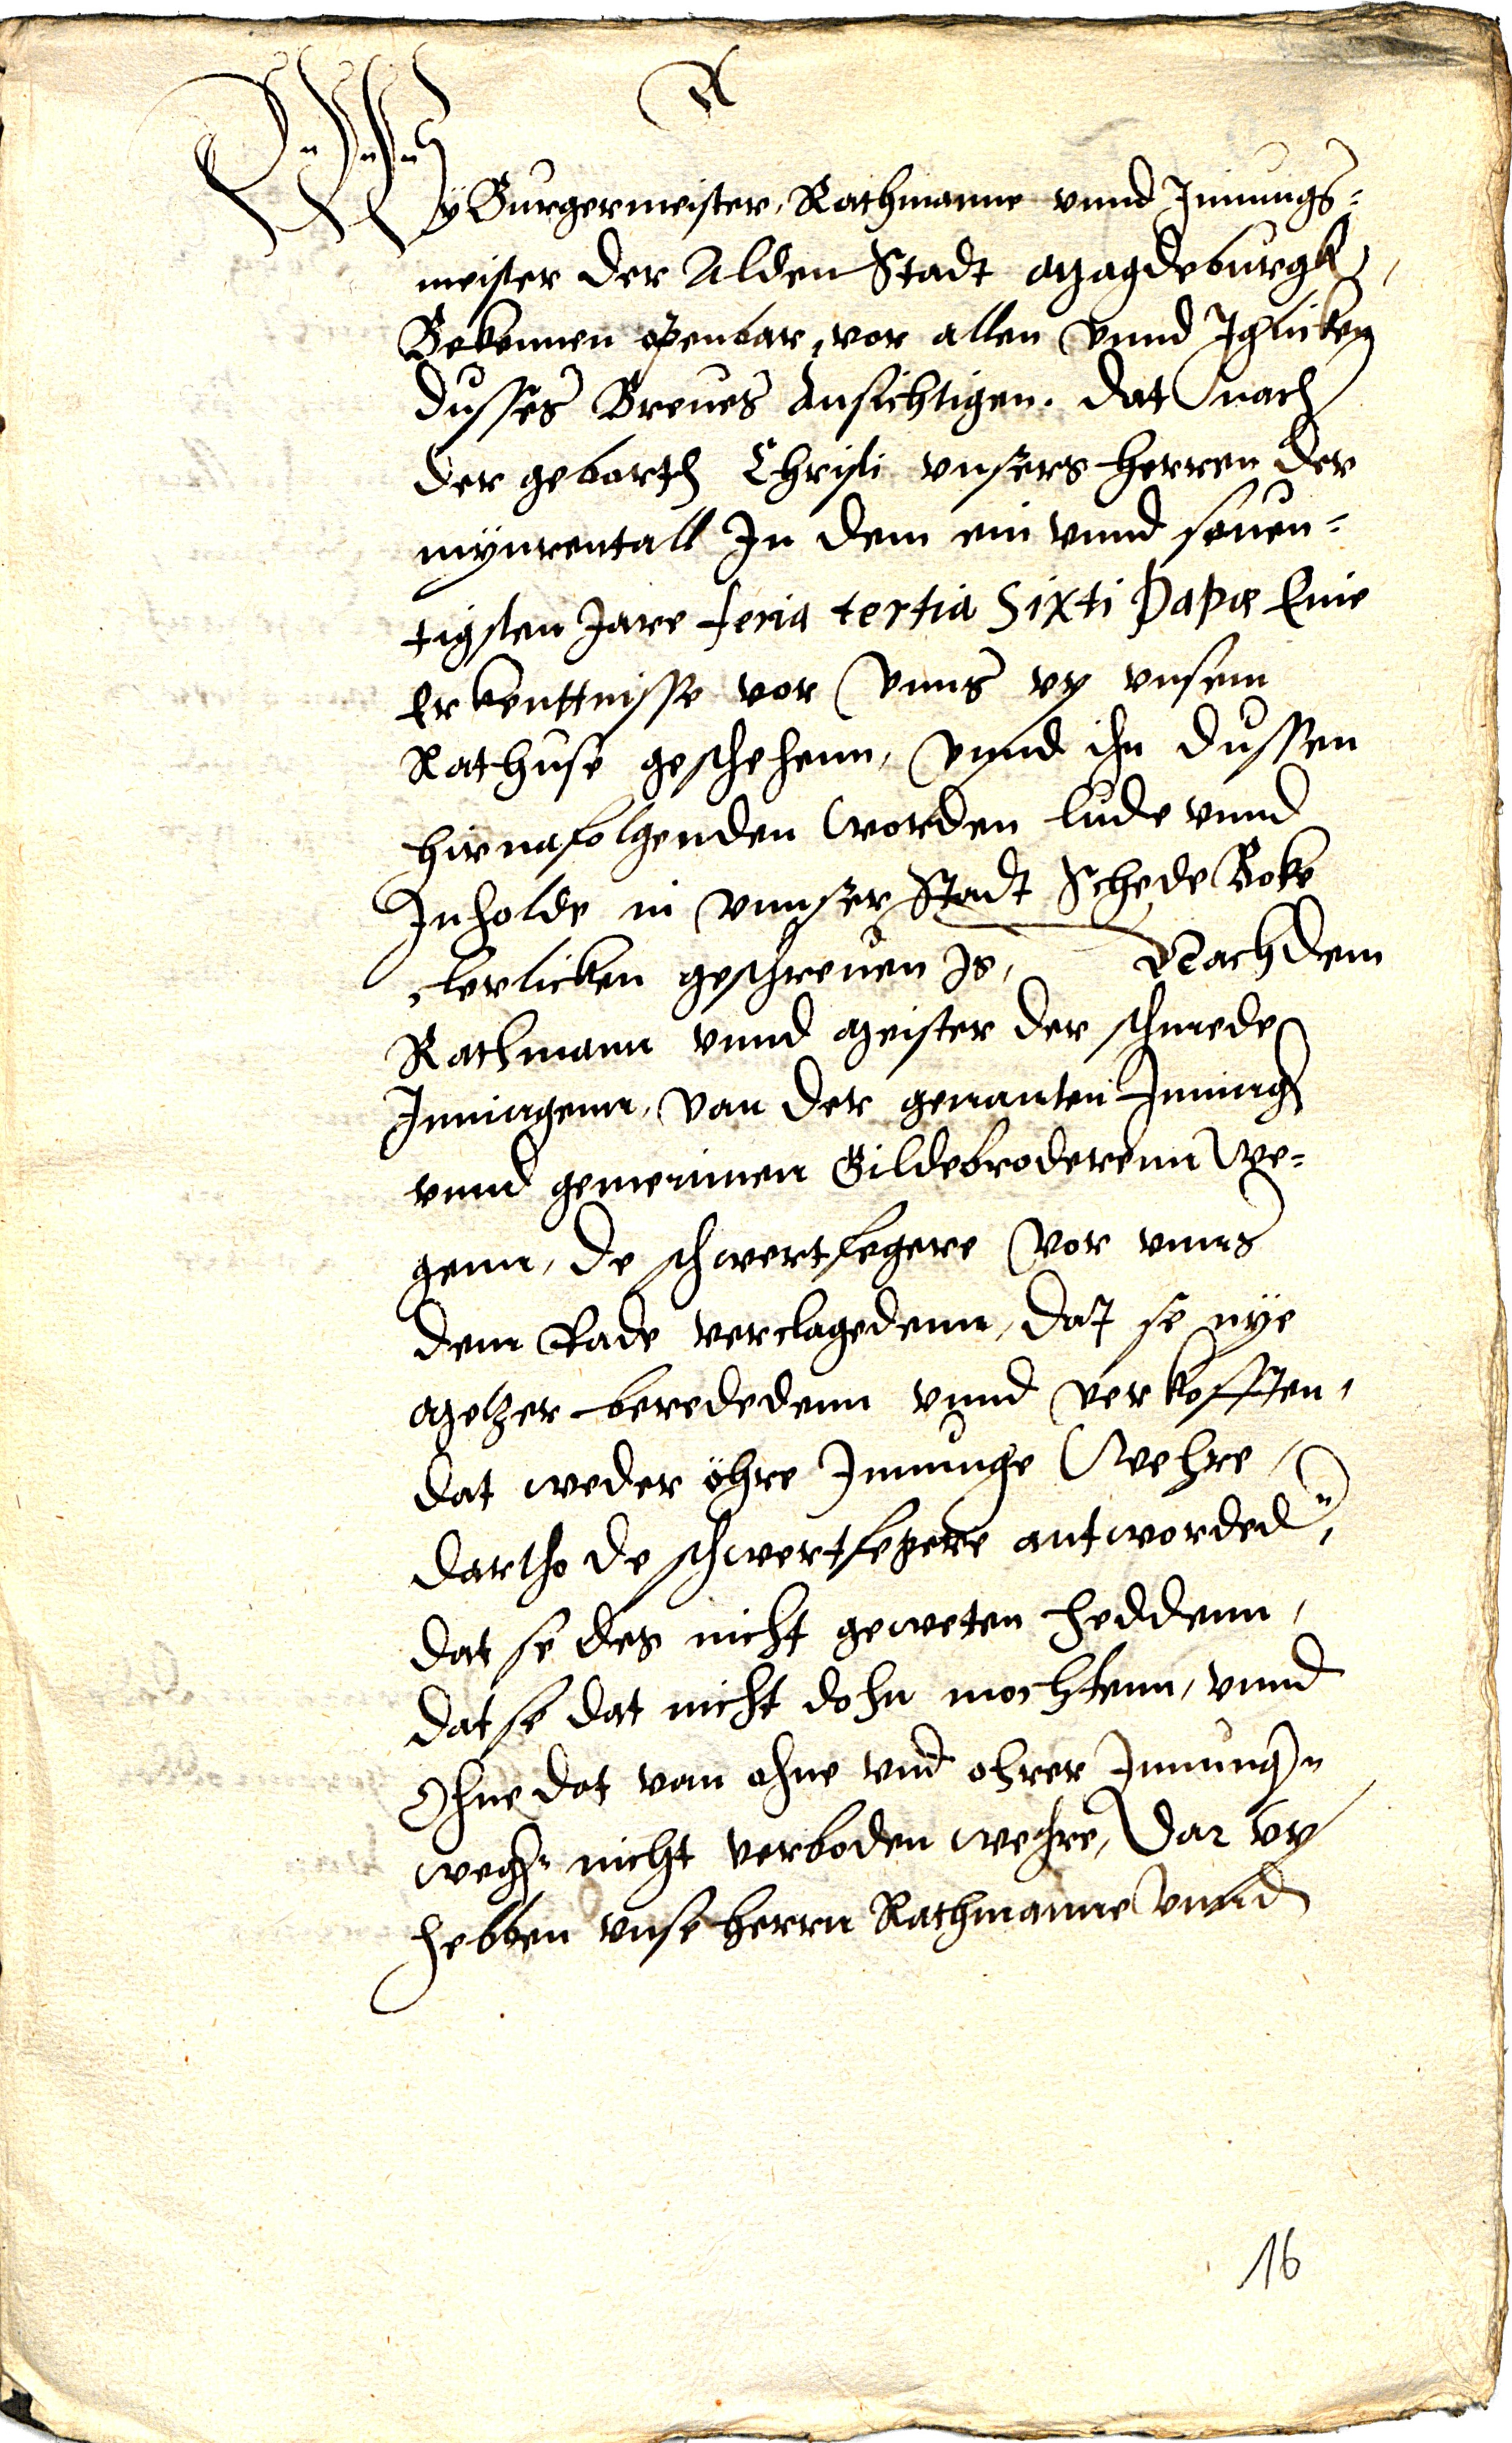 A
Wy Burgermeister, Rathmanne vnnd Innungs=
meister der Alden Stadt Magdeburgk,
Bekennen openbar, vor allen vnnd Iglicken
dusses Breues Ansichtigen. Dat nach
der geborth Christi vnsers Herren der
mynrentall In dem ein vnnd seuen=
tigsten Jare feria tertia Sixti Papæ Eine
Erkenttnisse vor vnns vp vnsem
Rathuse geschehenn, vnnd ihn dussen
hirnafolgenden worden lude vnnd
Inholde in vnnser Stadt Schede Boke
clerlicken geschreuen Is, Nachdem
Rathmann vnnd Meister der schmede
Inningenn, van der genanten Inning
vnnd gemeinnen Gildebroderenn We=
genn, de schwertfegere vor vnns
dem Rade verclagedenn, dat se nye
Metzer beredédenn vnnd verkofften,
dat weder öhre Innunge Wehre,
dartho de schwertfegere antworded,
dat se des nicht geweten heddenn,
dat se dat nicht dohn mochtenn, vnnd
Ohne dat van ohne vnd ohrer Innung
wegen nicht verboden wehre, Dar vp
hebben vnse herrn Rathmanne vnnd
16